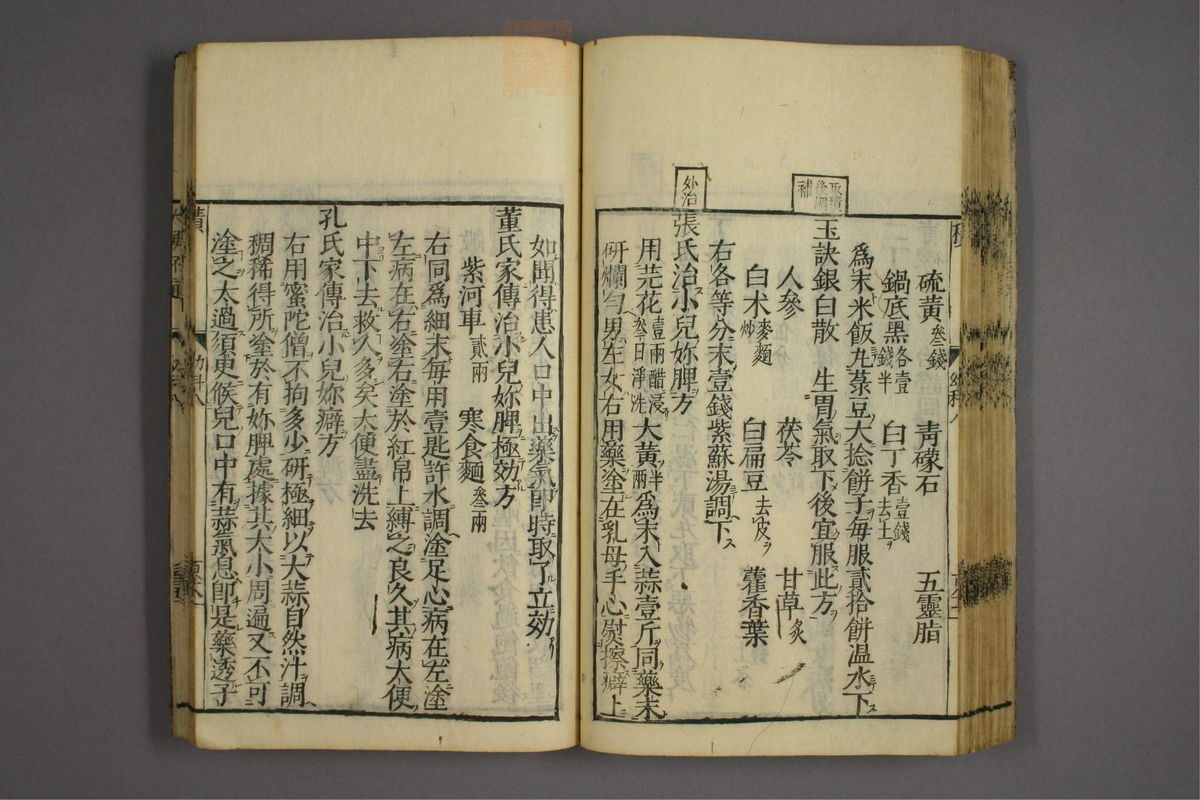 硫黃叁錢　青礞石　五靈脂
鍋底黑各壹錢半　白丁香壹錢去土ヲ
爲末米飯丸菉豆大捻餅子每服貳拾餅温水下ス
取積後調補
玉訣銀白散　生胃氣取下後宜服此方
人參　茯苓　甘草炙
白术麥麵炒　白扁豆去皮ヲ　藿香葉
右各等分末壹錢紫蘇湯調下ス
外治
張氏治小兒妳脾方
用芫花壹兩醋浸叁日淨洗大黃半兩爲末入蒜壹斤同藥末
研爛勻男左女右用藥塗在乳母手心熨擦癖上
如聞得患人口中出藥氣卽時取了立効
董氏家傳治小兒妳脾極効方
紫河車貳兩　寒食麵叁兩
右同爲細末每用壹匙許水調塗足心病在左塗
左病在右塗右塗於紅帛上縛之良久其病大便
中下去救人多矣大便盡洗去
孔氏家傳治小兒妳癖方
右用蜜陀僧不拘多少研極細以大蒜自然汁調
稠稀得所塗於有妳脾處據其大小周遍又不可
塗之太過須更候兒口中有蒜氣息卽是藥透子
積